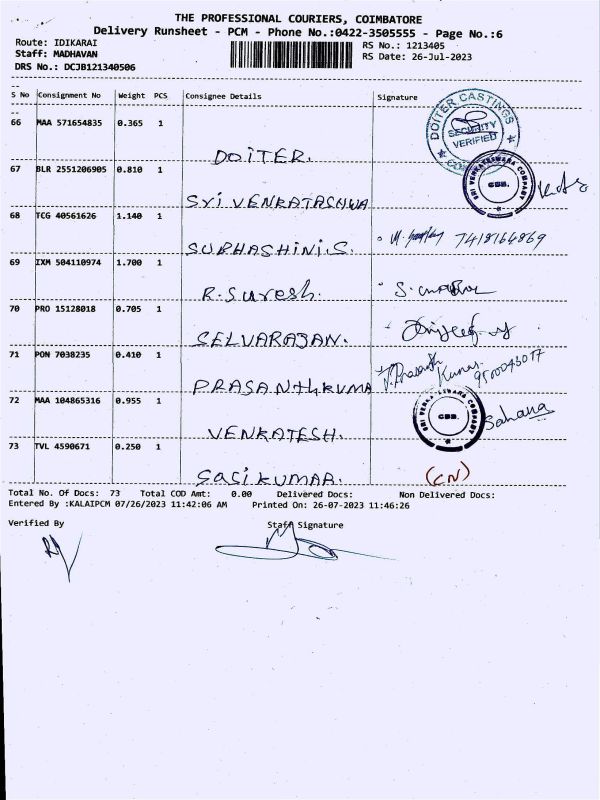 THE PROFESSIONAL COURIERS, COIMBATORE
Delivery Runsheet - PCM - Phone No.:0422-3505555 - Page No.:6
Route: IDIKARAI
RS No.: 1213405
Staff: MADHAVAN
RS Date: 26-Jul-2023
DRS No.: DCJB121340506
S No Consignment No Weight PCS Consignee Details Signature
66 MAA 571654835 0.365 1
DOITER CASTINGS
SECURITY
VERIFIED
DOITER.
67 BLR 2551206905 0.810 1
SRI VENKATESWARA COMPANY
CBE.
Sri VENKATASHWA
68 TCG 40561626 1.140 1
SUBHASHINI.S. 7418164869
69 IXM 504110974 1.700 1
R.Suresh.
70 PRO 15128018 0.705 1
SELVARAJAN.
71 PON 7038235 0.410 1
PRASANTHKUMA V.Prasanth Kumar
72 MAA 104865316 0.955 1
COMPANY
CBE.
VENKATESH. Sahana
73 TVL 4590671 0.250 1
SASIKUMAR. (CN)
Total No. Of Docs: 73 Total COD Amt: 0.00 Delivered Docs: Non Delivered Docs:
Entered By :KALAIPCM 07/26/2023 11:42:06 AM Printed On: 26-07-2023 11:46:26
Verified By Staff Signature